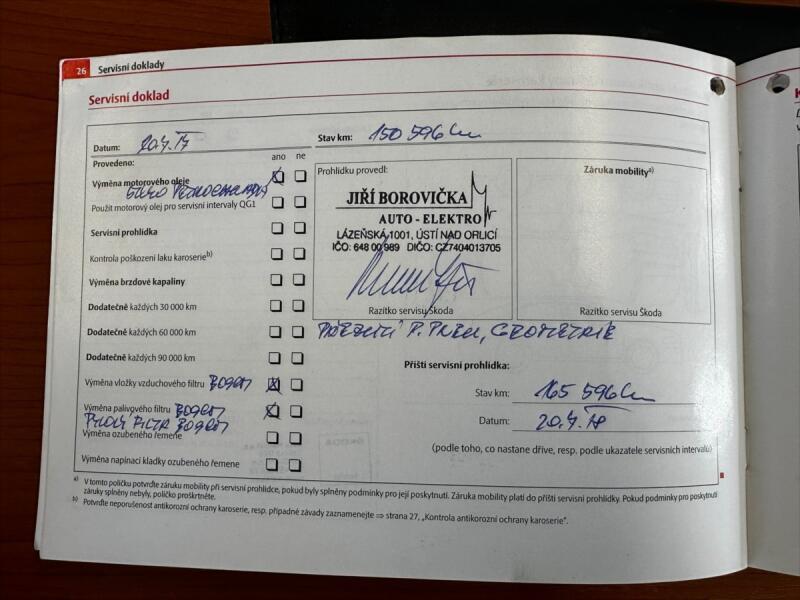 26 Servisní doklady
Servisní doklad
Datum: 20.4.17
Stav km: 150 596 km
Provedeno:
ano ne
Výměna motorového oleje
EURO
Použit motorový olej pro servisní intervaly QG1
Servisní prohlídka
Kontrola poškození laku karoserie b)
Výměna brzdové kapaliny
Dodatečně každých 30 000 km
Dodatečně každých 60 000 km
Dodatečně každých 90 000 km
Výměna vložky vzduchového filtru BOGEN
Výměna palivového filtru BOGEN
PYLOVÝ FILTR BOGEN
Výměna ozubeného řemene
Výměna napínací kladky ozubeného řemene
Prohlídku provedl:
JIŘÍ BOROVIČKA
AUTO - ELEKTRO
LÁZEŇSKÁ 1001, ÚSTÍ NAD ORLICÍ
IČO: 648 00 989 DIČO: CZ7404013705
Razítko servisu Škoda
Záruka mobility a)
Razítko servisu Škoda
GEOMETRIE
Příští servisní prohlídka:
Stav km: 165 596 km
Datum: 20.4.18
(podle toho, co nastane dříve, resp. podle ukazatele servisních intervalů)
a) V tomto políčku potvrďte záruku mobility při servisní prohlídce, pokud byly splněny podmínky pro její poskytnutí. Záruka mobility platí do příští servisní prohlídky. Pokud podmínky pro poskytnutí
záruky splněny nebyly, políčko proškrtněte.
b) Potvrďte neporušenost antikorozní ochrany karoserie, resp. případné závady zaznamenejte ⇒ strana 27, „Kontrola antikorozní ochrany karoserie“.